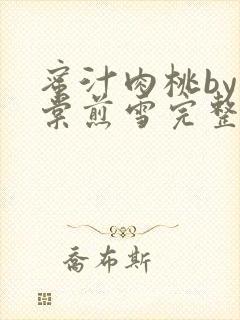 蜜汁肉桃by
棠煎雪完整
乔布斯